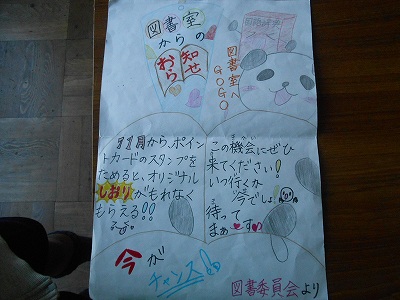 図書室
からの
お知らせ
図書室へ
GOGO
から、ポイン
トカードのスタンプを
ためると、オリジナル
しおりがもれなく
もらえる!!
この機会にぜひ
きかい
来てください!
いつ行くか
今でしょ!
待って
まぁ〜す
今が
チャンス
図書委員会より